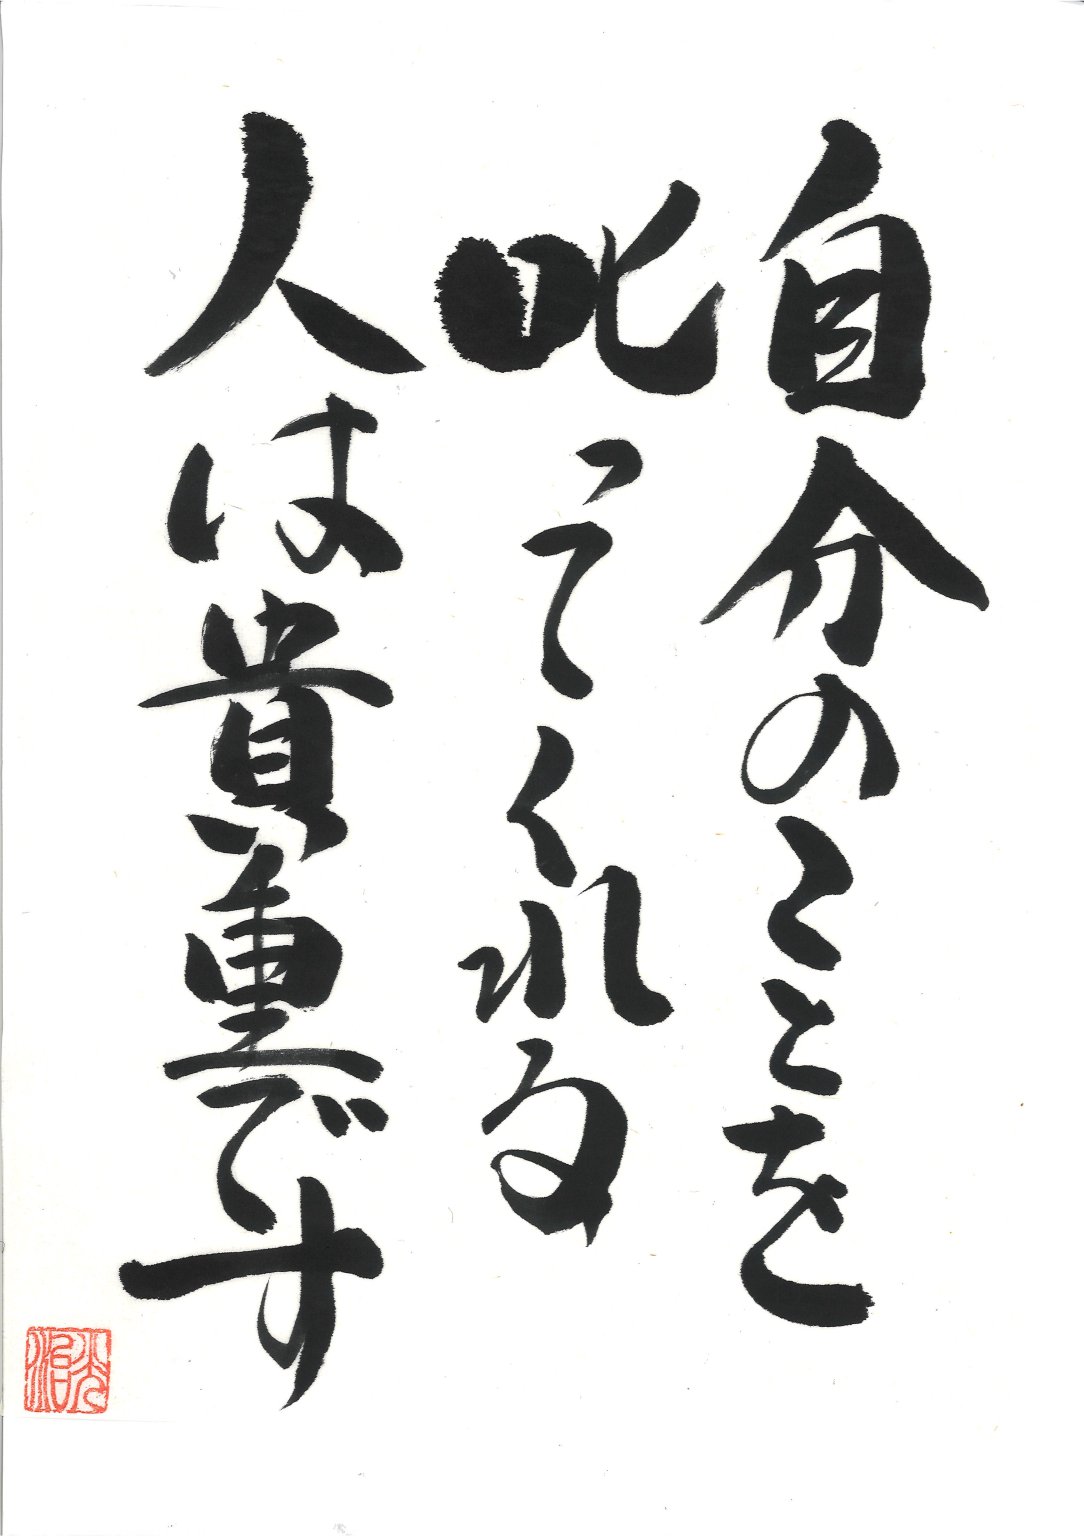 自分のことを
叱ってくれる
人は貴重です